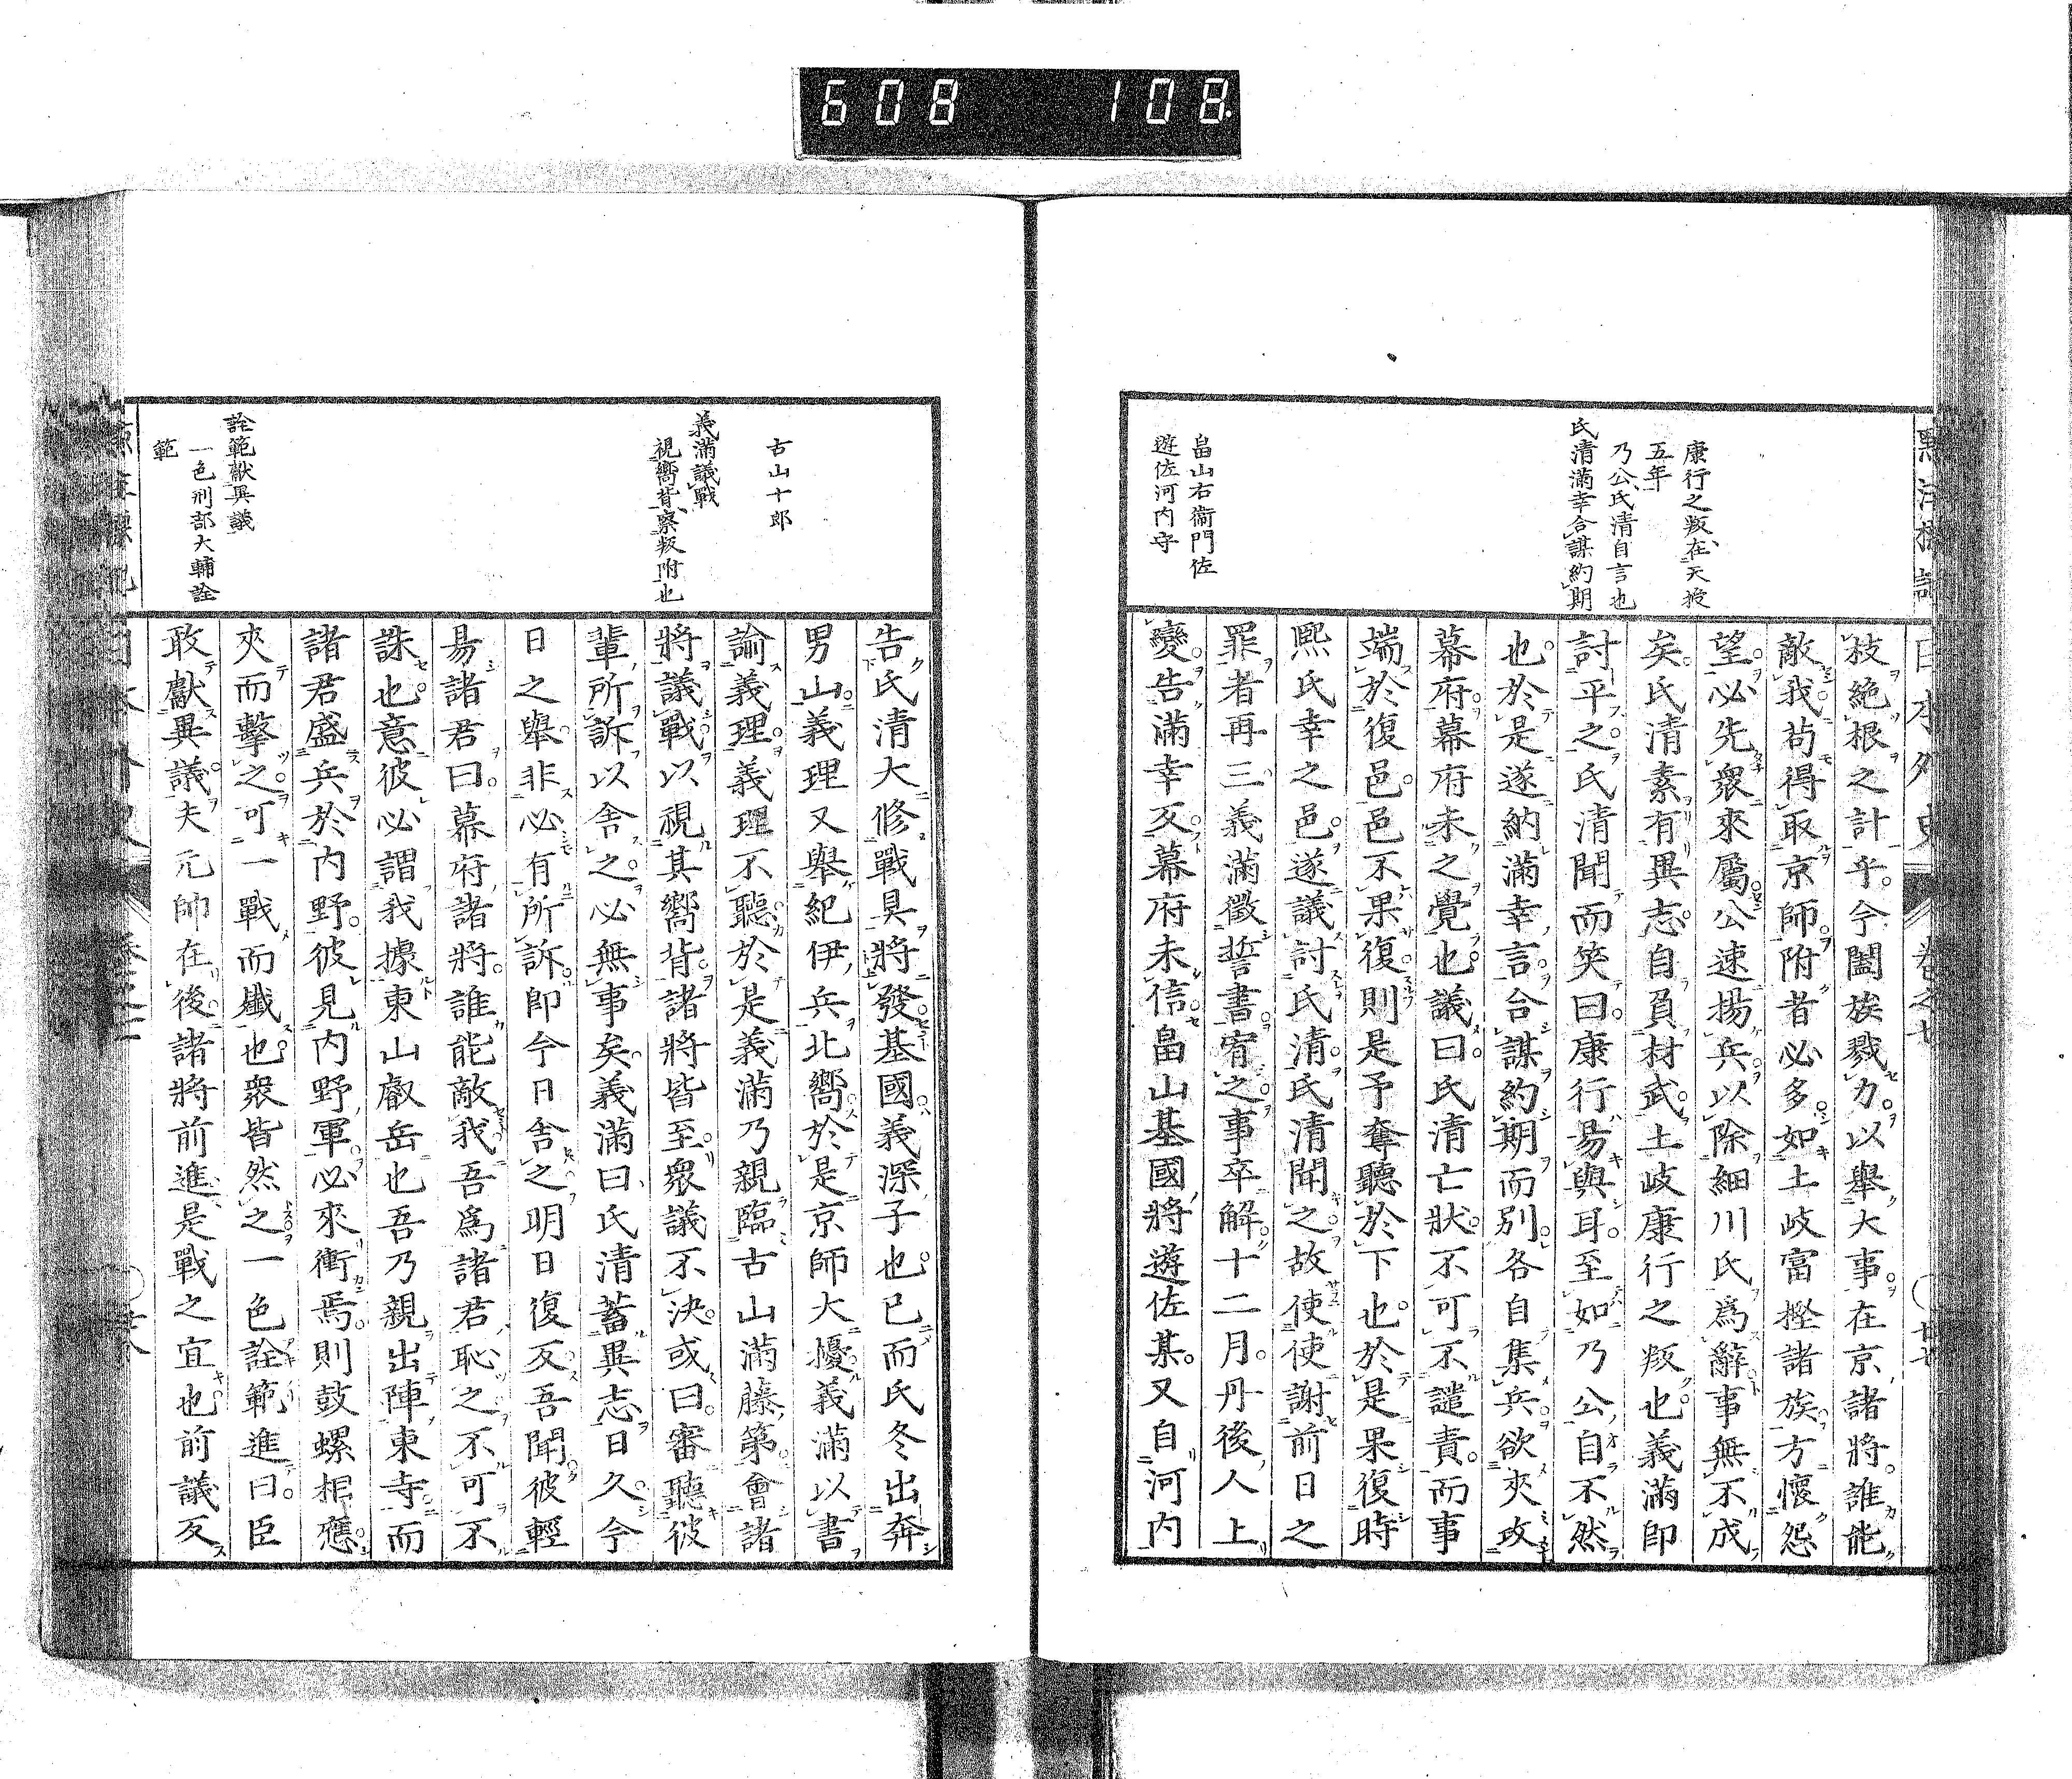 608 108
日本外史 卷之七 廿七
康行之叛、在天授
五年
乃公、氏清自言也
氏清滿幸合謀約期
畠山右衞門佐
遊佐河内守
枝絶根之計乎。今闔族戮力。以舉大事。在京諸將。誰能
敵我。苟得取京師。附者必多。如土岐富樫諸族。方懷怨
望。必先衆來屬。公速揚兵。以除細川氏爲辭。事無不成
矣。氏清素有異志。自負材武。土岐康行之叛也。義滿即
討平之。氏清聞而笑曰。康行易與耳。至如乃公。自不然
也。於是遂納滿幸言。合謀約期而別。各自集兵。欲夾攻
幕府。幕府未之覺也。議曰。氏清亡狀。不可不譴責。而事
端於復邑。邑不果復。則是予奪聽於下也。於是果復時
熙氏幸之邑。遂議討氏清。氏清聞之。故使使謝前日之
罪者再三。義滿徵誓書。宥之。事卒解。十二月。丹後人上
變。告滿幸反。幕府未信。畠山基國。將遊佐某。又自河内
古山十郎
義滿議戰
視嚮背、察叛附也
詮範獻異議
一色刑部大輔詮
範
告氏清大修戰具。將發。基國。義深子也。已而氏冬出奔
男山。義理又舉紀伊兵北嚮。於是京師大擾。義滿以書
諭義理。義理不聽。於是義滿乃親臨古山滿藤第。會諸
將議戰。以視其嚮背。諸將皆至。衆議不決。或曰。審聽彼
輩所訴。以舍之。必無事矣。義滿曰。氏清蓄異志日久。今
日之舉。非必有所訴。即今日舍之。明日復反。吾聞彼輕
易諸君曰。幕府諸將。誰能敵我。吾爲諸君恥之。不可不
誅也。意彼必謂我據東山叡岳也。吾乃親出陣東寺。而
諸君盛兵於内野。彼見内野軍。必來衝焉。則鼓螺相應。
夾而擊之。可一戰而殲也。衆皆然之。一色詮範進曰。臣
敢獻異議。夫元帥在後。諸將前進。是戰之宜也。前議反